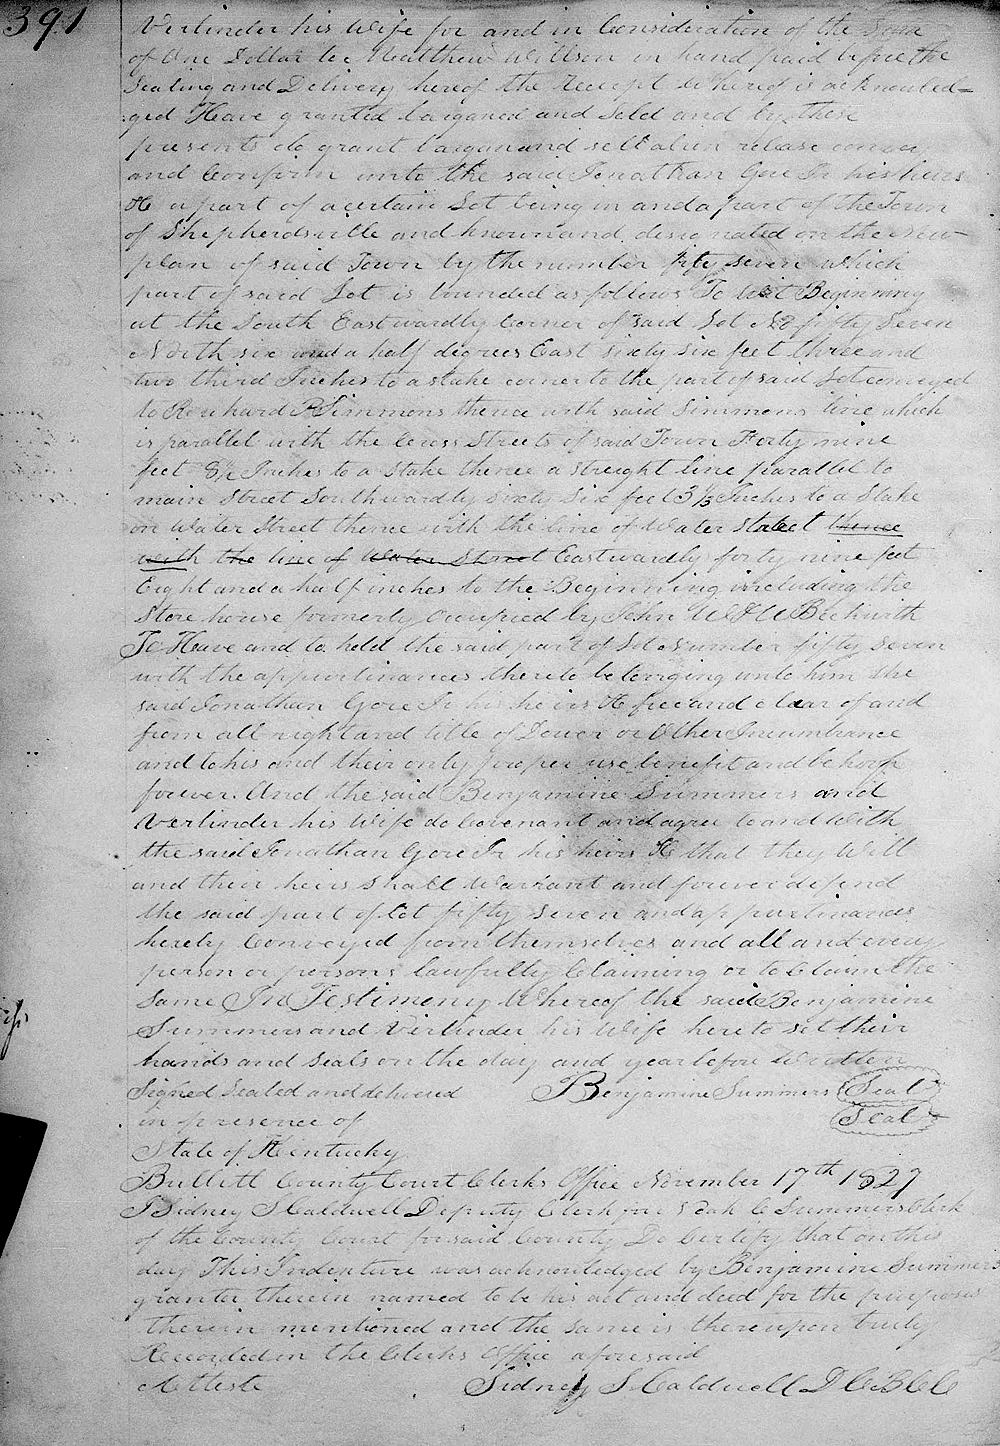 391
Verlinder his Wife for and in Consideration of the Sum
of One Dollar to Matthew Willson in hand paid before the
Sealing and Delivery hereof the Receipt whereof is acknowled=
ged Have granted barganed and Sold and by these
presents do grant bargan and sell alien release convey
and Confirm unto the said Jonathan Gore Jr his heirs
&c a part of a certain Lot being in and a part of the Town
of Shepherdsville and known and designated on the New
plan of said Town by the number fifty seven which
part of said Lot is bounded as follows To wit Beginning
at the South Eastwardly Corner of said Lot No fifty Seven
North six and a half degrees East sixty six feet three and
two third Inches to a stake corner to the part of said Lot conveyed
to Simmons thence with said Simmons line which
is parallel with the Cross Streets of said Town Forty nine
feet 8½ Inches to a Stake thence a streight line parallel to
main Street Southwardly sixty six feet 3⅓ Inches to a Stake
on Water Street thence with the line of Water Street thence
with the line of Water Street Eastwardly forty nine feet
Eight and a half inches to the Beginning including the
Store house formerly Occupied by John W & W Beckwith
To Have and to hold the said part of Lot Number fifty Seven
with the appurtinances thereto belonging unto him the
said Jonathan Gore Jr his heirs &c free and clear of and
from all right and title of Dower or Other Incumbrance
and to his and their only proper use benefit and behoof
forever. And the said Benjamine Summers and
Verlinder his Wife do Covenant and agree to and With
the said Jonathan Gore Jr his heirs &c that they Will
and their heirs shall Warrant and forever defend
the said part of lot fifty seven and appurtinances
hereby Conveyed from themselves and all and every
person or persons lawfully Claiming or to Claim the
Same In Testimony Whereof the said Benjamine
Summers and Verlinder his Wife here to set their
hands and seals on the day and year before Written
Signed Sealed and delivered Benjamine Summers Seal
in presence of Seal
State of Kentucky
Bullitt County Court Clerks Office November 17th 1827
I Sidney S Caldwell Deputy Clerk for Noah C Summers Clerk
of the County Court for said County Do Certify that on this
day This Indenture was acknowledged by Benjamine Summers
grantor therein named to be his act and deed for the purposes
therein mentioned and the same is thereupon truly
Recorded in the Clerks Office aforesaid
Atteste Sidney S Caldwell D C B C C